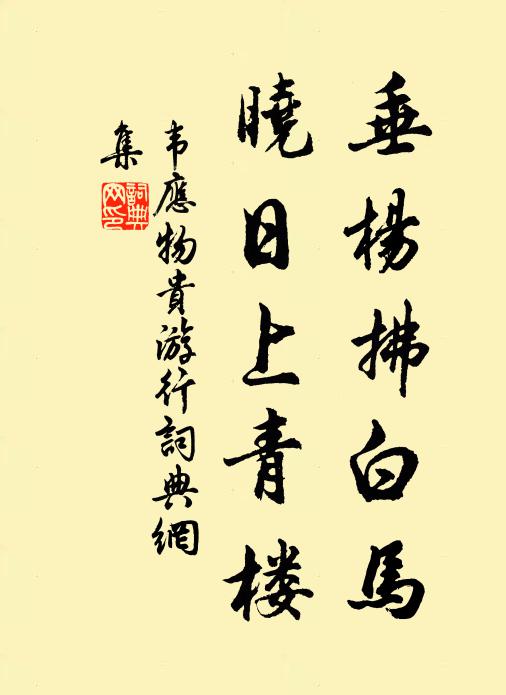 垂楊拂白馬
曉日上青楼
韦應物貴游行詞典網
集
詞典
网印